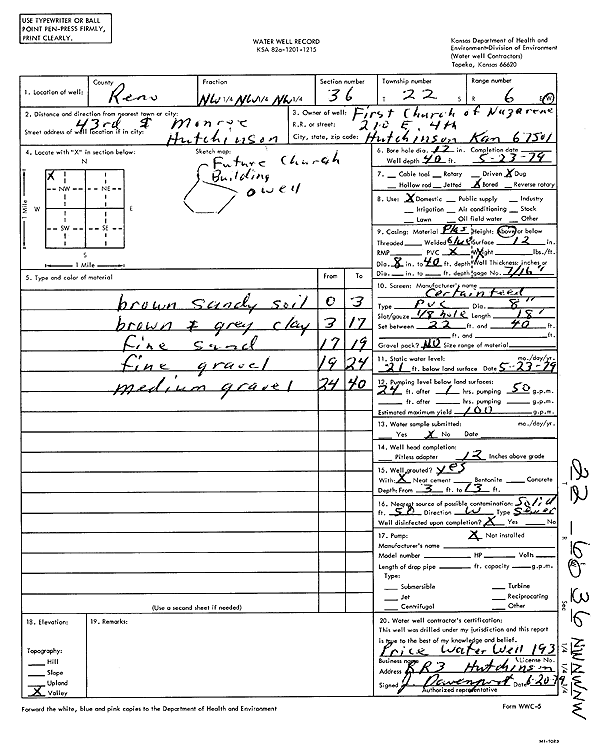 USE TYPEWRITER OR BALL
POINT PEN-PRESS FIRMLY,
PRINT CLEARLY.
WATER WELL RECORD
KSA 82a-1201-1215
Kansas Department of Health and
Environment-Division of Environment
(Water well Contractors)
Topeka, Kansas 66620
1. Location of well: County Reno Fraction NW 1/4 NW 1/4 NW 1/4 Section number 36 Township number T 22 S Range number R 6 E W
2. Distance and direction from nearest town or city: 43rd & Monroe
Street address of well location if in city: Hutchinson
3. Owner of well: First Church of Nazarene
R.R. or street: 210 E. 4th
City, state, zip code: Hutchinson Kan 67501
4. Locate with "X" in section below:
N
X
NW NE
W E
SW SE
S
1 Mile
1 Mile
Sketch map:
Future Church
Building
o well
6. Bore hole dia. 12 in. Completion date
Well depth 40 ft. 5-23-79
7. Cable tool Rotary Driven X Dug
Hollow rod Jetted X Bored Reverse rotary
8. Use: X Domestic Public supply Industry
Irrigation Air conditioning Stock
Lawn Oil field water Other
9. Casing: Material Plas Height: Above or below
Threaded Welded Glue Surface 12 in.
RMP PVC X Weight lbs./ft.
Dia. 8 in. to 40 ft. depth Wall Thickness: inches or
Dia. in. to ft. depth gage No. 7/16"
5. Type and color of material From To
brown sandy soil 0 3
brown & grey clay 3 17
fine sand 17 19
fine gravel 19 24
medium gravel 24 40
(Use a second sheet if needed)
10. Screen: Manufacturer's name
Certainteed
Type PVC Dia. 8"
Slot/gauze 1/8 hole Length 18'
Set between 22 ft. and 40 ft.
ft. and ft.
Gravel pack? NO Size range of material
11. Static water level: mo./day/yr.
21 ft. below land surface Date 5-23-79
12. Pumping level below land surfaces:
24 ft. after 1 hrs. pumping 50 g.p.m.
ft. after hrs. pumping g.p.m.
Estimated maximum yield 100 g.p.m.
13. Water sample submitted: mo./day/yr.
Yes X No Date
14. Well head completion:
Pitless adapter 12 Inches above grade
15. Well grouted? yes
With: X Neat cement Bentonite Concrete
Depth: From 3 ft. to 13 ft.
16. Nearest source of possible contamination: Solid
ft. 50 Direction W Type Sewer
Well disinfected upon completion? X Yes No
17. Pump: X Not installed
Manufacturer's name
Model number HP Volts
Length of drop pipe ft. capacity g.p.m.
Type:
Submersible Turbine
Jet Reciprocating
Centrifugal Other
18. Elevation:
Topography:
Hill
Slope
Upland
X Valley
19. Remarks:
20. Water well contractor's certification:
This well was drilled under my jurisdiction and this report
is true to the best of my knowledge and belief.
Price Water Well 193
Business name License No.
Address RR3 Hutchinson
Signed J. Davenport Date 6-20-79
Authorized representative
Forward the white, blue and pink copies to the Department of Health and Environment
Form WWC-5
22 - 6 W 36 NWNWNW
T Sec 1/4 1/4 1/4